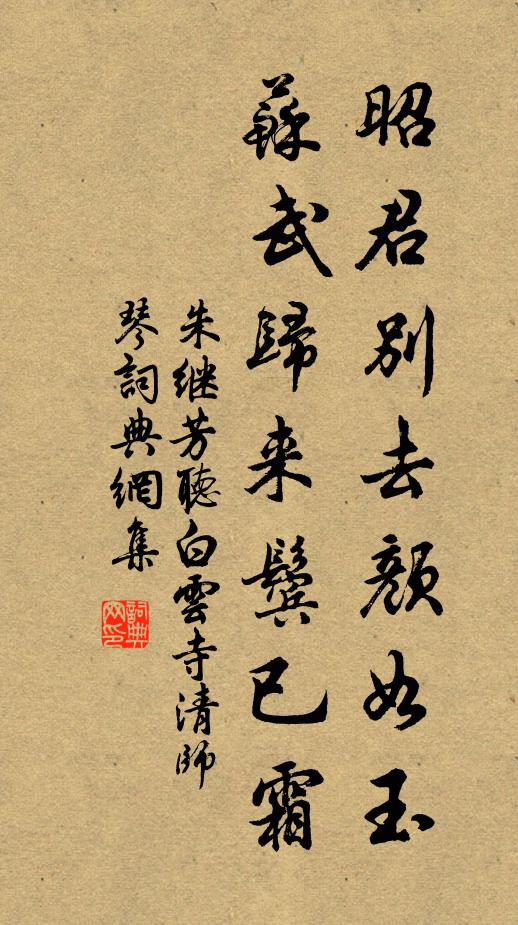 昭君別去顏如玉
蘇武歸来鬢已霜
朱继芳聽白雲寺清師
琴詞典網集
詞典網印